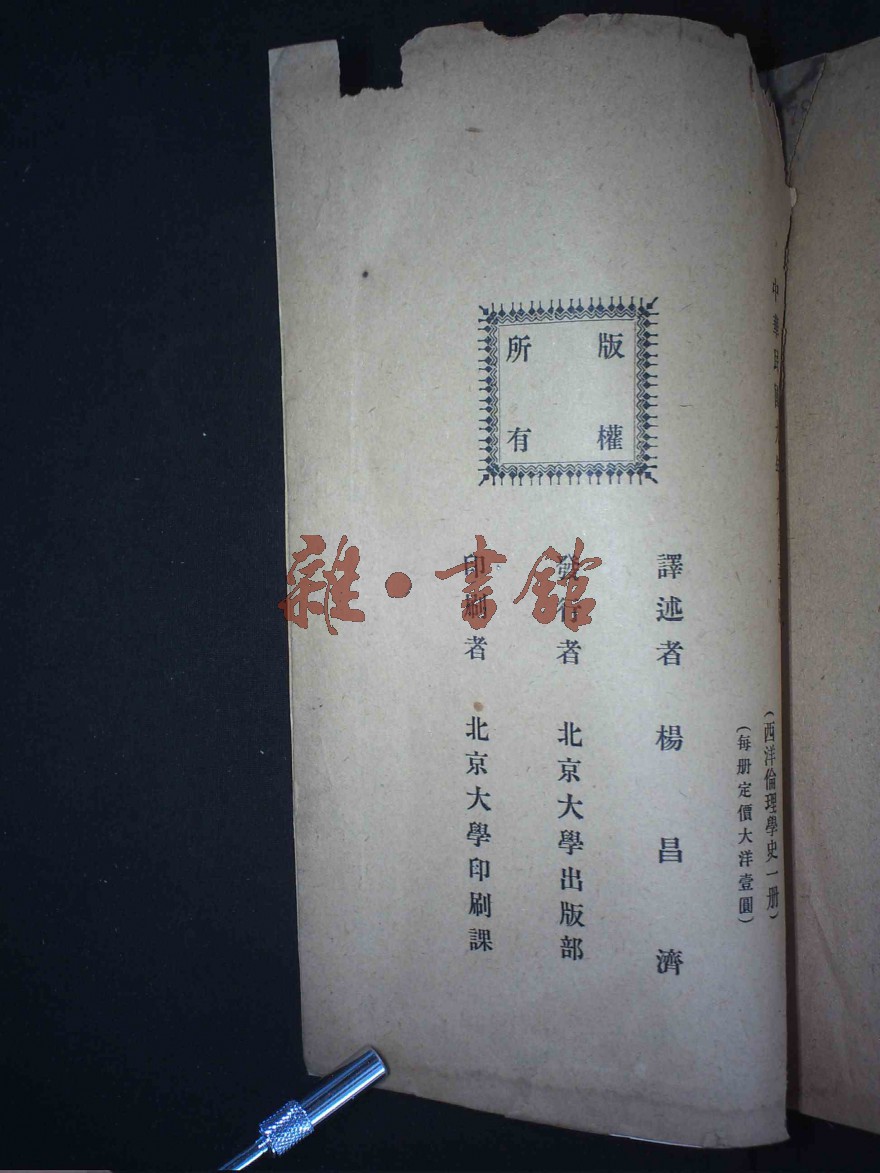 中華民國
(西洋倫理學史一册)
(每册定價大洋壹圓)
版權
所有
譯述者 楊昌濟
發行者 北京大學出版部
印刷者 北京大學印刷課
雜·書館